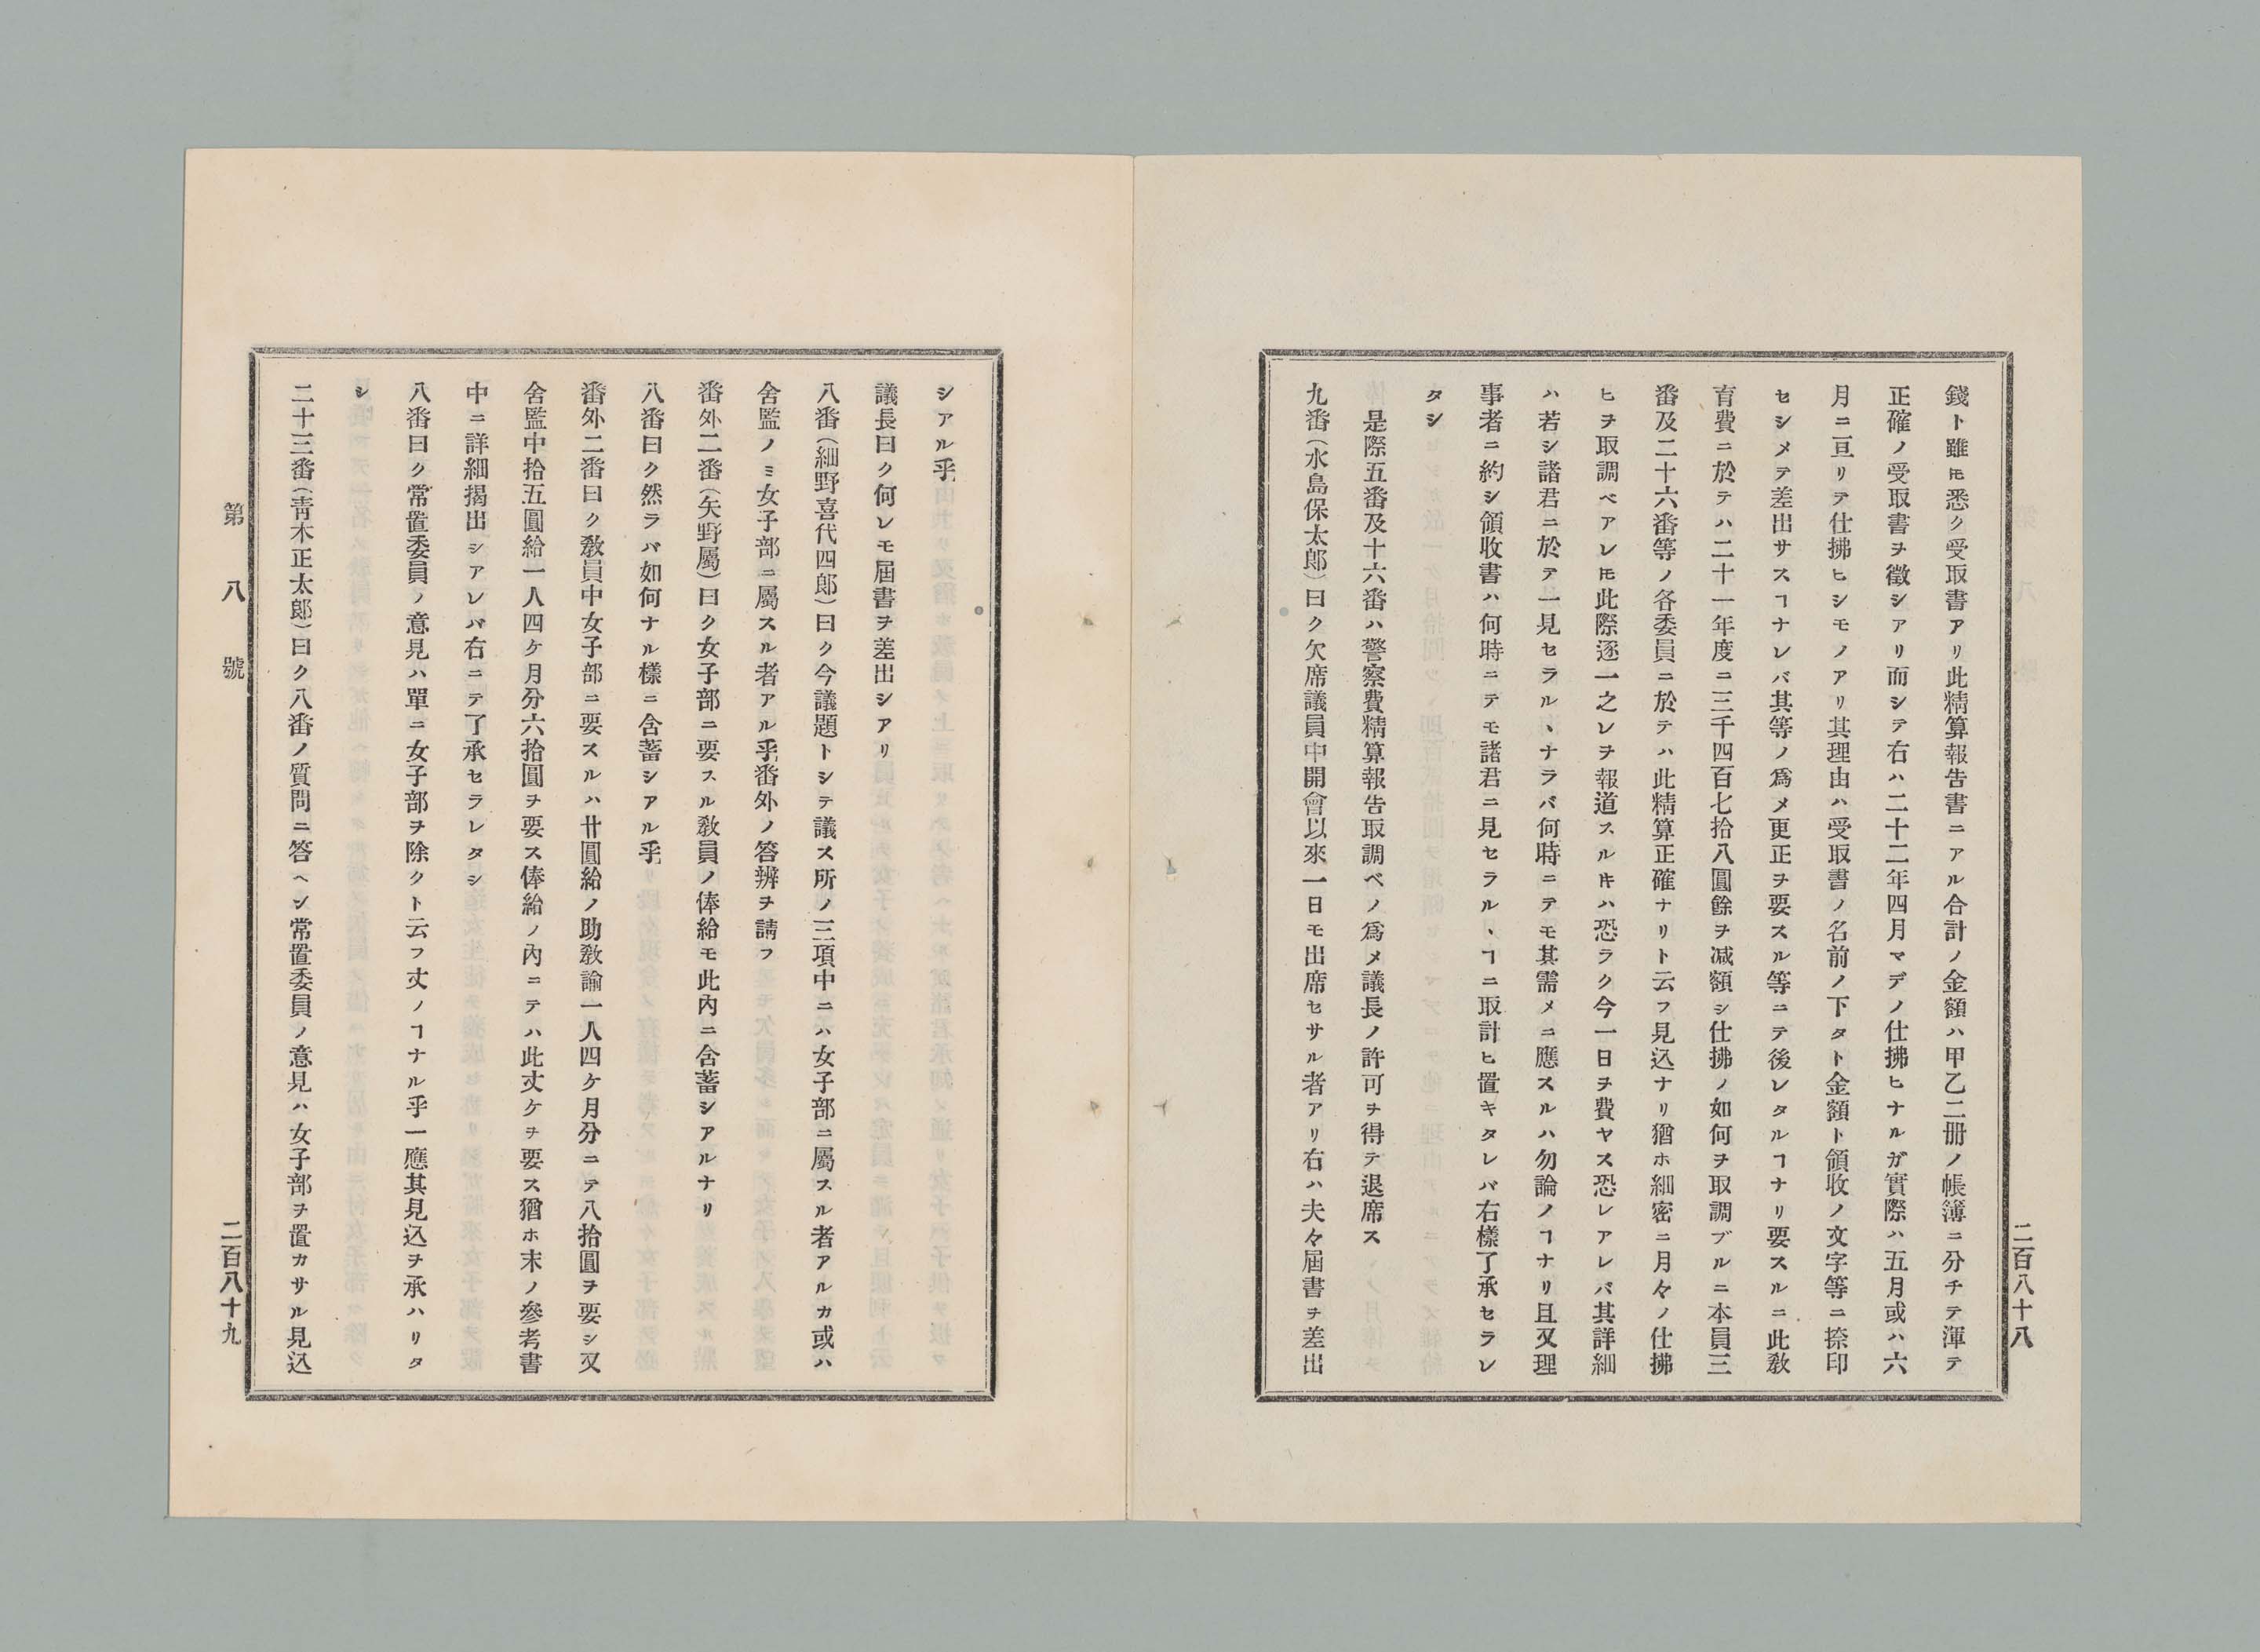 錢ト雖𪜈悉ク受取書アリ此精算報告書ニアル合計ノ金額ハ甲乙二册ノ帳簿ニ分チテ渾テ
正確ノ受取書ヲ徵シアリ而シテ右ハ二十二年四月マデノ仕拂ヒナルガ實際ハ五月或ハ六
月ニ亘リテ仕拂ヒシモノアリ其理由ハ受取書ノ名前ノ下タト金額ト領收ノ文字等ニ捺印
セシメテ差出サスヿナレバ其等ノ爲メ更正ヲ要スル等ニテ後レタルヿナリ要スルニ此敎
育費ニ於テハ二十一年度ニ三千四百七拾八圓餘ヲ减額シ仕拂ノ如何ヲ取調ブルニ本員三
番及二十六番等ノ各委員ニ於テハ此精算正確ナリト云フ見込ナリ猶ホ細密ニ月々ノ仕拂
ヒヲ取調ベアレ𪜈此際逐一之レヲ報道スルキハ恐ラク今一日ヲ費ヤス恐レアレバ其詳細
ハ若シ諸君ニ於テ一見セラルヽナラバ何時ニテモ其需メニ應スルハ勿論ノヿナリ且又理
事者ニ約シ領收書ハ何時ニテモ諸君ニ見セラルヽヿニ取計ヒ置キタレバ右樣了承セラレ
タシ
是際五番及十六番ハ警察費精算報告取調ベノ爲メ議長ノ許可ヲ得テ退席ス
九番(水島保太郎)曰ク欠席議員中開會以來一日モ出席セサル者アリ右ハ夫々屆書ヲ差出
二百八十八
シアル乎
議長曰ク何レモ屆書ヲ差出シアリ
八番(細野喜代四郎)曰ク今議題トシテ議ス所ノ三項中ニハ女子部ニ屬スル者アルカ或ハ
舍監ノミ女子部ニ屬スル者アル乎番外ノ答辨ヲ請フ
番外二番(矢野屬)曰ク女子部ニ要スル敎員ノ俸給モ此內ニ含蓄シアルナリ
八番曰ク然ラバ如何ナル樣ニ含蓄シアル乎
番外二番曰ク敎員中女子部ニ要スルハ廿圓給ノ助敎諭一人四ケ月分ニテ八拾圓ヲ要シ又
舍監中拾五圓給一人四ケ月分六拾圓ヲ要ス俸給ノ內ニテハ此丈ケヲ要ス猶ホ末ノ參考書
中ニ詳細揭出シアレバ右ニテ了承セラレタシ
八番曰ク常置委員ノ意見ハ單ニ女子部ヲ除クト云フ丈ノヿナル乎一應其見込ヲ承ハリタ
シ
二十三番(靑木正太郎)曰ク八番ノ質問ニ答ヘン常置委員ノ意見ハ女子部ヲ置カサル見込
第八號
二百八十九